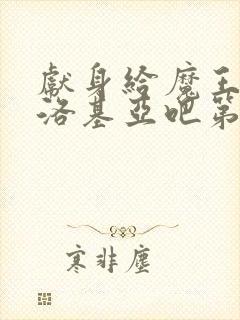 獻身給魔王
洛基亞吧第
寒非塵